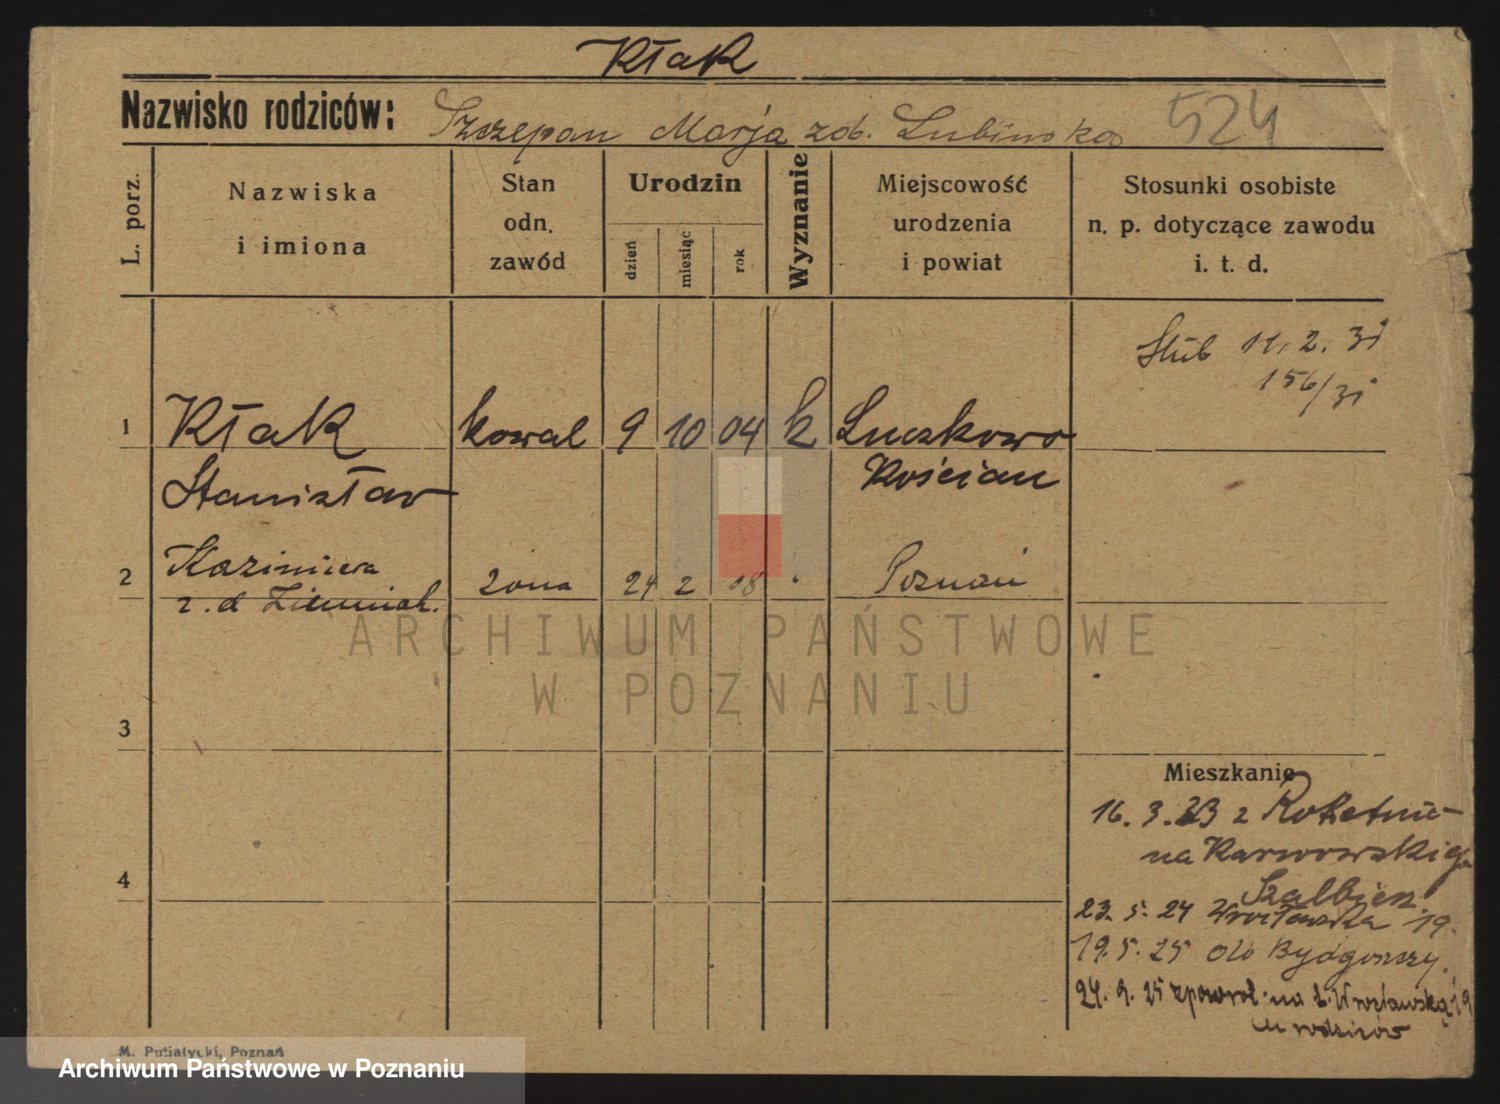 Kłak
Nazwisko rodziców: Szczepan Marja zd. Lubinska 524
L. porz.
Nazwiska i imiona
Stan odn. zawód
Urodzin
dzień miesiąc rok
Wyznanie
Miejscowość urodzenia i powiat
Stosunki osobiste n. p. dotyczące zawodu i. t. d.
Ślub 11. 2. 31
156/31
1 Kłak kowal 9 10 04 k Luczkowo
Stanisław Kościan
2 Kazimiera żona 24 2 08 Poznań
z. d.
ARCHIWUM PAŃSTWOWE
W POZNANIU
3
Mieszkanie
16. 3. 23 z Rokietnic
na Karwowskiego
4
23. 5. 24 Wrocławska 19.
19. 5. 25 do Bydgoszczy.
24. 9. 25 zpowrot na ul. Wrocławską 19
u rodziców
M. Putiatycki, Poznań
Archiwum Państwowe w Poznaniu